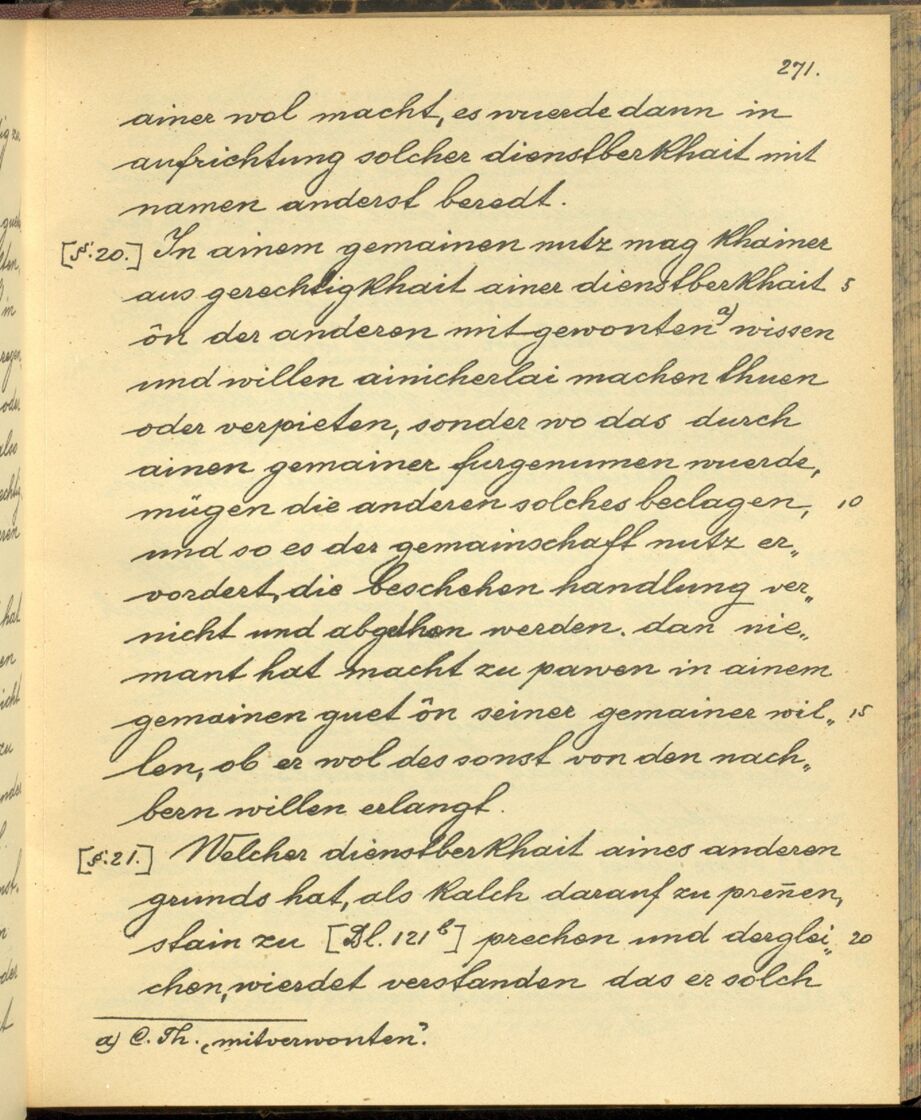 271.
ainer wol macht, es wuerde dann in
aufrichtung solcher dienstberkhait mit
namen anderst beredt.
[§.20.] In ainem gemainen nutz mag khainer
aus gerechtigkhait ainer dienstberkhait 5
ôn der anderen mitgewonten a) wissen
und willen ainicherlai machen thuen
oder verpieten, sonder wo das durch
ainen gemainer furgenumen wuerde,
mügen die anderen solches beclagen, 10
und so es der gemainschaft nutz er„
vordert, die beschehen handlung ver„
nicht und abgethan werden. dan nie„
mant hat macht zu pawen in ainem
gemainen guet ôn seiner gemainer wil„ 15
len, ob er wol des sonst von den nach„
bern willen erlangt.
[§.21.] Welcher dienstberkhait aines anderen
grunds hat, als kalch darauf zu preñen,
stain zu [Bl. 121 b] prechen und derglei„ 20
chen, wierdet verstanden das er solch
a) C. Th. „mitverwonten“.